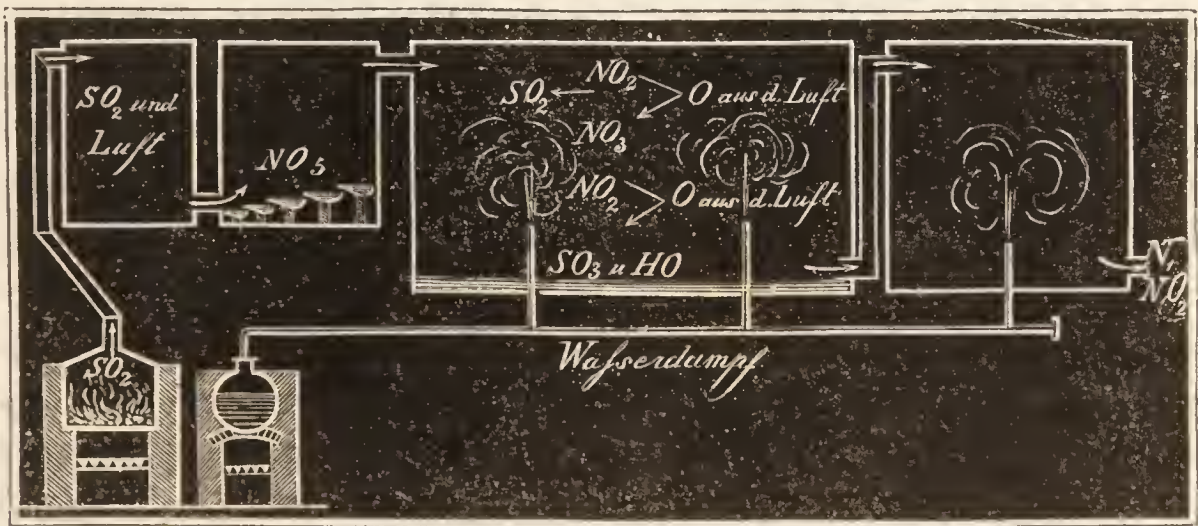 SO₂ und
Luft
NO₅
NO₂
SO₂ O aus d. Luft
NO₃
NO₂ O aus d. Luft
SO₃ u HO
N,
NO₂
Waſserdampf
SO₂